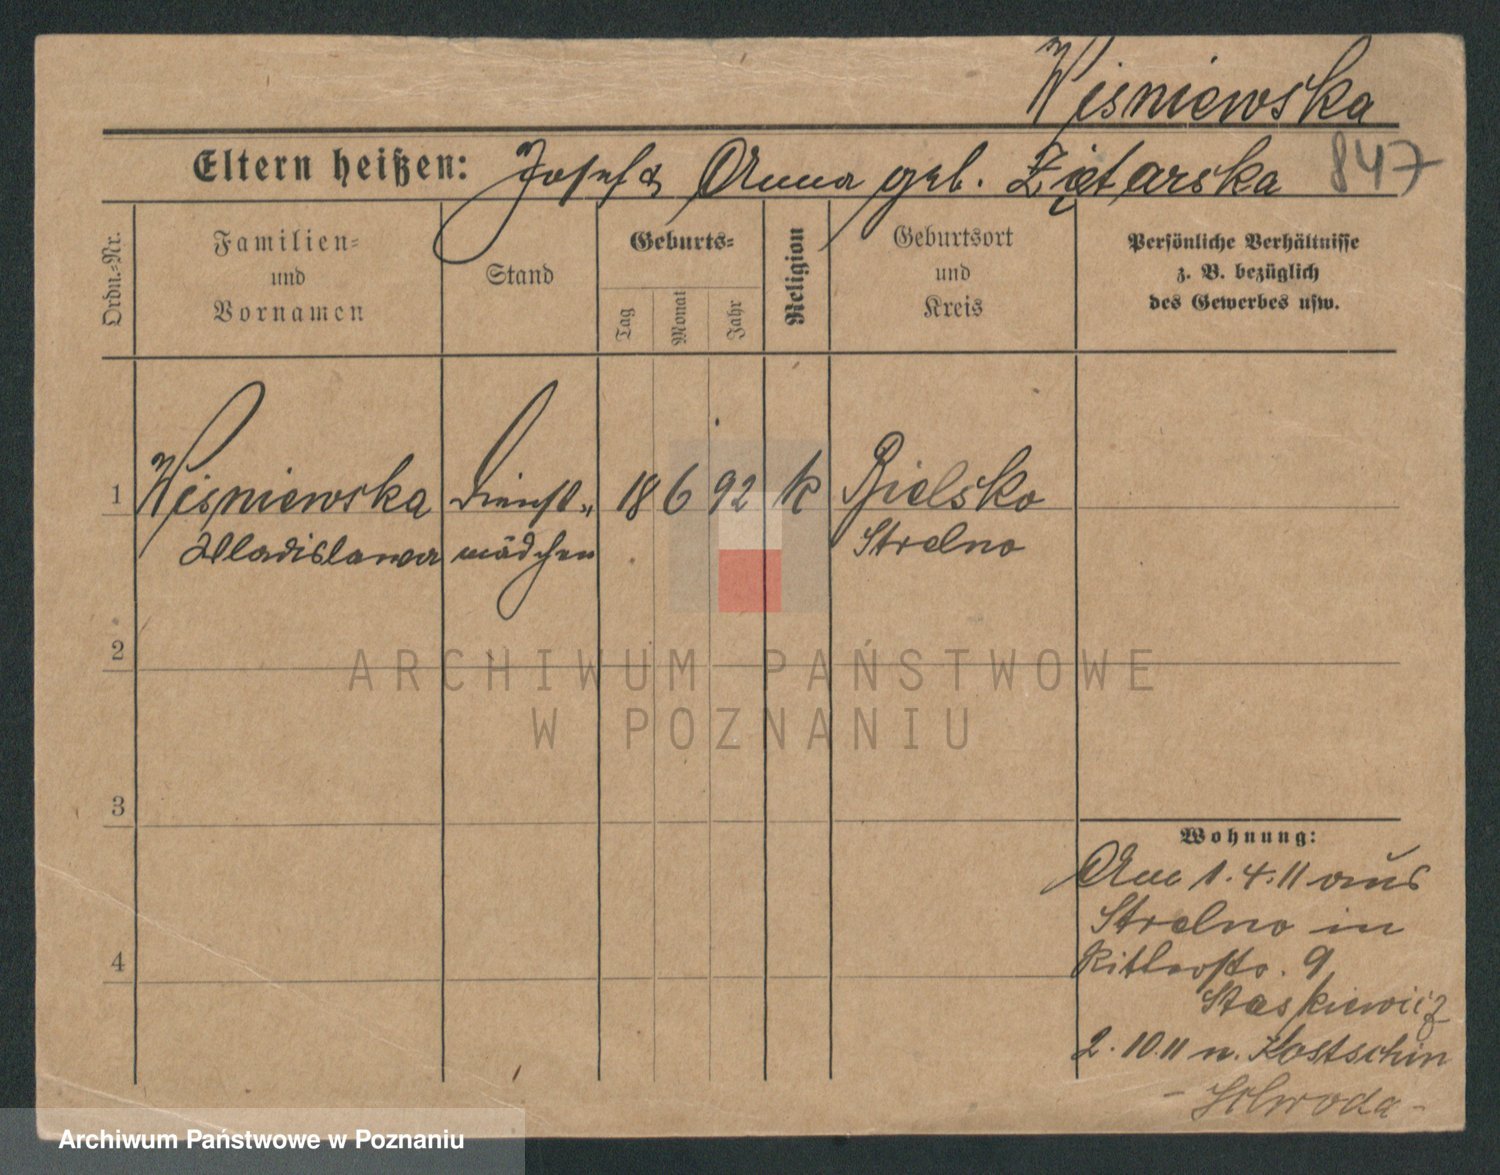 Wiśniewska
Eltern heißen: Josef & Anna geb. Ziętarska 847
Ordn.-Nr.
Familien-
und
Vornamen
Stand
Geburts-
Tag
Monat
Jahr
Religion
Geburtsort
und
Kreis
Persönliche Verhältnisse
z. B. bezüglich
des Gewerbes usw.
1 Wiśniewska Dienst„ 18 6 92 k Bielsko
Wladislawa mädchen Strelno
2
3
4
Wohnung:
Am 1.4.11 aus
Strelno in
Ritterstr. 9
Staśkiewicz
2.10.11 n. Kostschin
ARCHIWUM PAŃSTWOWE
W POZNANIU
Archiwum Państwowe w Poznaniu